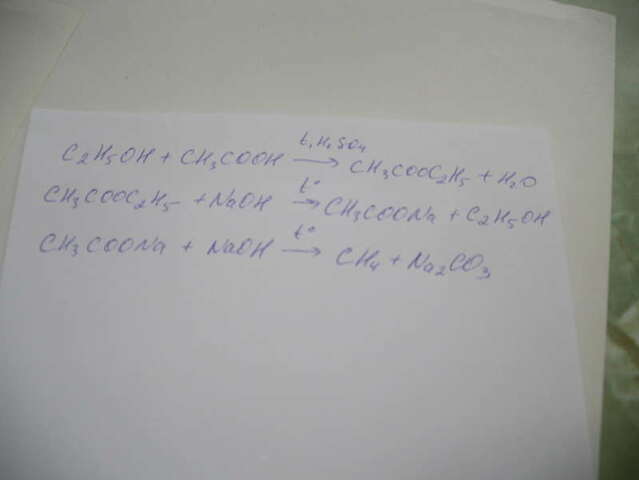 C2H5OH + CH3COOH t, H2SO4 → CH3COOC2H5 + H2O
CH3COOC2H5 + NaOH t° → CH3COONa + C2H5OH
CH3COONa + NaOH t° → CH4 + Na2CO3